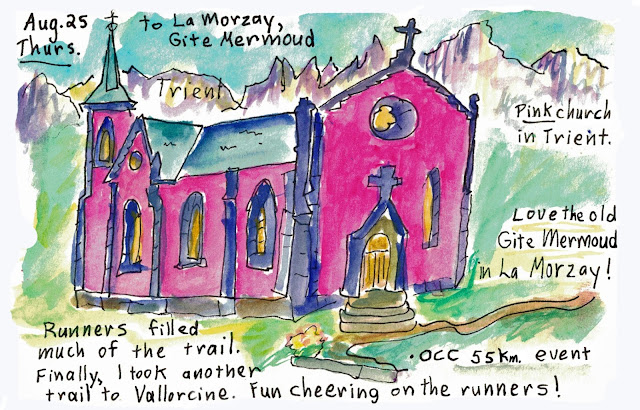 Aug. 25
Thurs.
to La Morzay,
Gite Mermoud
Trient
Pink church
in Trient.
Love the old
Gite Mermoud
in La Morzay!
Runners filled
much of the trail.
Finally, I took another
trail to Vallorcine. Fun cheering on the runners!
• OCC 55km. event